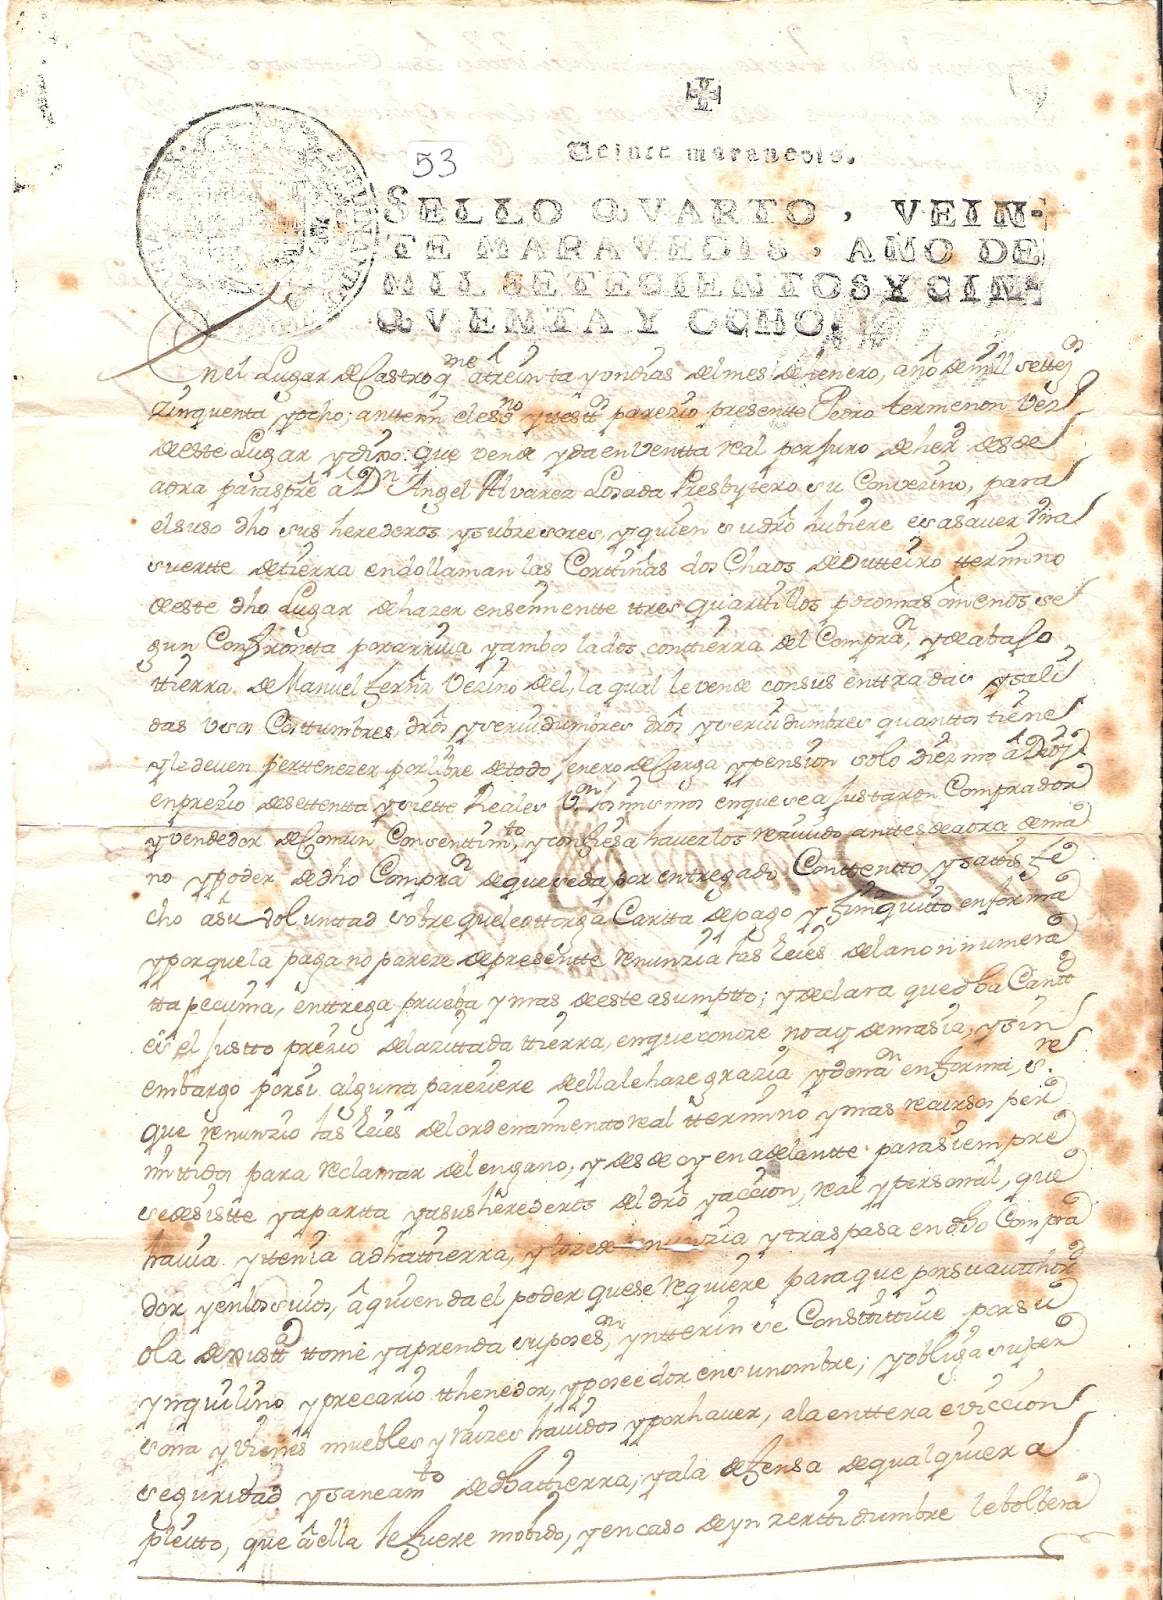 53
Veinte maravedis.
SELLO QVARTO, VEIN-
TE MARAVEDIS, AÑO DE
MIL SETECIENTOS Y CIN-
QVENTA Y OCHO.
En el Lugar de Castro q.me â treinta y un dias del mes de henero, año de mill settez.
zinquenta y ocho; antte mi el ess.no y testt.s parezio presentte Pedro termenon Vez.
de este Lugar y dixo: que vende y da en Ventta real por Juro de her.d desde
aora para spre â D.n Angel Alvarez Losada Presbytero su Convezino, para
el suso dho sus herederos y subzesores, y quien su dro hubiere es a saver Una
suertte de tierra en do llaman las Cortiñas dos Chaos de Outteiro ttermino
de este dho Lugar de hazer en semientte ttres quartillos poco mas ô menos, se
gun Confrontta por arriva y ambos lados con ttierra del Compra.r, y de abaJo
ttierra de Manuel ferñz Vezino de el, la qual le vende con sus enttradas y sali
das usos Costtumbres, dros y servidumbres dros y servidumbres quanttos tiene
y le deven perttenezer por libre de todo Jenero de Carga y pension solo diezmo â Dios
en prezio de settentta y siette Reales V.on los mismos en que se aJustaron Comprador
y vendedor de Comun Consenttim.to, y confiesa haverlos rezivido anttes de aora de ma
no y poder de dho Compra.r de que se da por entregado Conttentto y sattisfe
cho a su Voluntad sobre que le ottorga Cartta de pago y finiquitto en forma
y por que la paga no pareze de presentte renunzia las leies de la non numera
tta pecunia, enttrega prueba y mas de este asumptto; y declara que dha Cantt.d
es el Justto prezio de la zittada ttierra, en que conoze no ay demasia, y sin
embargo por si alguna pareziere de ella le haze grazia y dona.n en forma, s.re
que renunzio las leies del ordenamientto real ttermino y mas recursos per
mitidos para reclamar del engano, y desde oy en adelantte para siempre
se desiste y apartta y a sus herederos del dro y accion, real y personal, que
havia y ttenia a dha ttierra, y lo zede renunzia y traspasa en dho Compra
dor y en los suios, â quien da el poder que se requiere para que por su authorid.d
ô la de justt.a ttome y aprenda su poses.on, y ntterin se Constittuie por su
ynquilino y precario tthenedor, y poseedor en su nombre; y obliga su per
sona y vienes muebles y raizes havidos y por haver, a la enttera eviccion
seguridad y saneam.to de dha ttierra, y a la defensa de qualquiera
pleitto, que â ella le fuere mobido, y en caso de ynzerttidumbre le bolbera